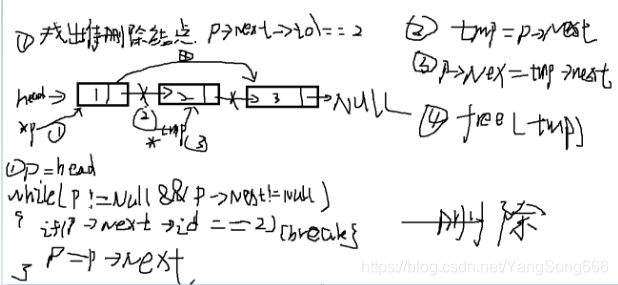 ① 找出待删除结点. p→next→id == 2
② tmp = p→next
③ p→nex = tmp→next
④ free(tmp)
head→ 1 2 3 → NULL
*p ① ② *tmp ③
① p = head
while(p != Null && p→next != null)
{ if(p→next→id == 2) {break}
p = p→next
}
删除
https://blog.csdn.net/YangSong666